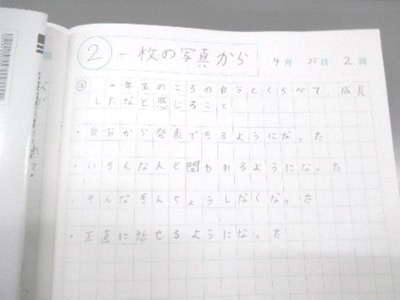 ② 一枚の写真から 4月25日 2回
一年生のころの自分とくらべて 成長
したなと感じること
・自分から発表できるようになった
・いろんな人と関われるようになった
・そんなきんちょうしなくなった
・正直に話せるようになった